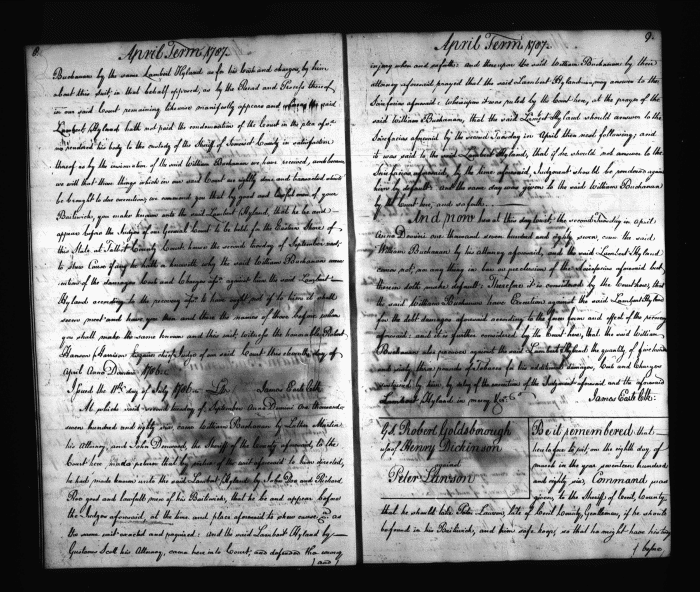 8.
April Term 1787.
Buchanan by the same Lambert Hyland as for his costs and charges, by him
about this suit, in that behalf expended, as by the Record and Process thereof
in our said Court remaining likewise manifestly appears and whereas the said
Lambert Hyland hath not paid the condemnation of the Court in the plea afsd.
or rendered his body to the custody of the Sheriff of Somerset County in satisfaction
thereof as by the insinuation of the said William Buchanan we have received, and because
we will that those things which in our said Court are rightly done and transacted should
be brought to due execution, we command you that by good and lawful men of your
Bailiwick, you make known unto the said Lambert Hyland, that he be and
appear before the Judges of our General Court to be held for the Eastern Shore of
this State at Talbot County Court house the second tuesday of September next,
to shew Cause if any he hath wherewith why the said William Buchanan
of the damages Costs and Charges afsd. against him the said Lambert
Hyland according to the recovery afsd. to him ought not if to him it shall
seem meet and have you then and there the names of those before whom
you shall make the same known and this writ, witness the honourable Robert
Hanson Harrison Esquire chief Judge of our said Court this eleventh day of
April Anno Domini 1786.
Issued the 11th. day of July 1786. James Earle Clk.
At which said second tuesday of September Anno Domini one thousand
seven hundred and eighty six, came William Buchanan by Luther Martin
his Attorney, and John Denwood, the Sheriff of the County aforesaid, to the
Court here made return that by virtue of the writ aforesaid to him directed,
he had made known unto the said Lambert Hyland by John Doe and Richard
Roe good and lawful men of his Bailiwick, that he be and appear before
the Judges aforesaid, at the time and place aforesaid to shew cause &c. as
the same writ exacted and required: and the said Lambert Hyland by
Gustavus Scott his Attorney, came here into Court, and defended the wrong
and
9.
April Term 1787.
injury when and so forth: and thereupon the said William Buchanan by his
attorney aforesaid prayed that the said Lambert Hyland may answer to the
Scirefacias aforesaid: whereupon it was ruled by the Court here, at the prayer of the
said William Buchanan, that the said Lambert Hyland should answer to the
Scirefacias aforesaid by the second Tuesday in April then next following; and
it was said to the said Lambert Hyland, that if he should not answer to the
Scirefacias aforesaid, by the time aforesaid, Judgment should be rendered against
him by default: and the same day was given to the said William Buchanan
by the Court here, and so forth.
And now here at this day, to wit, the second Tuesday in april
Anno Domini one thousand seven hundred and eighty seven, came the said
William Buchanan by his attorney aforesaid, and the said Lambert Hyland
comes not, nor any thing in bar or preclusion of the Scirefacias aforesaid but,
therein doth make default: Therefore it is considered by the Court here, that
the said William Buchanan have Execution against the said Lambert Hyland
for the debt damages aforesaid according to the force form and effect of the recovery
aforesaid: and it is further considered by the Court here, that the said William
Buchanan also recover against the said Lambert Hyland the quantity of five hundred
and sixty three pounds of Tobacco for his additional damages, Costs and Charges
sustained by him, by delay of the execution of the Judgment aforesaid and the aforesaid
Lambert Hyland in mercy &c. James Earle Clk:
Robert Goldsborough
Henry Dickinson
against
Peter Lawson
Be it remembered that
heretofore to wit, on the eighth day of
march in the year seventeen hundred
and eighty six, Command was
given, to the Sheriff of Cecil County
that he should take Peter Lawson, late of Cecil County, Gentleman, if he should
be found in his Bailiwick, and him safe keep, so that he might have his body
before